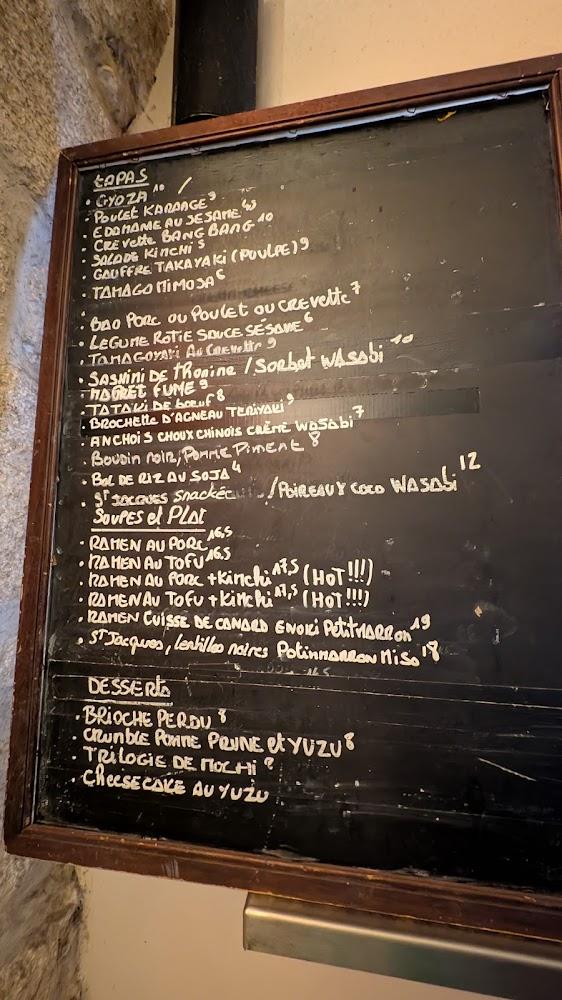 tAPAS
• GYOZA 10
• POULET KARAAGE 9
• EDAMAME AU SESAME 4,5
• CREVETTE BANG BANG 10
• SALADE KIMCHI 5
• GAUFFRE TAKAYAKI (POULPE) 9
• TAMAGO MIMOSA 6
• BAO PORC OU POULET OU CREVETTE 7
• LEGUME ROTIE SAUCE SÉSAME 6
• TAMAGOYAKI AU CREVETTE 9
• SASHIMI DE THONINE / SORBET WASABI 10
• MAGRET FUMÉ 9
• TATAKI DE BOEUF 8
• BROCHETTE D'AGNEAU TERIYAKI 9
• ANCHOIS CHOUX CHINOIS CRÈME WASABI 7
• BOUDIN NOIR, POMME PIMENT 8
• BOL DE RIZ AU SOJA 4
• ST JACQUES SNACKÉ / POIREAUX COCO WASABI 12
SOUPES et PLAT
• RAMEN AU PORC 16,5
• RAMEN AU TOFU 16,5
• RAMEN AU PORC + KIMCHI 17,5 (HOT!!!)
• RAMEN AU TOFU + KIMCHI 17,5 (HOT!!!)
• RAMEN CUISSE DE CANARD ENOKI PETIMARRON 19
• ST JACQUES, LENTILLES NOIRES POTIMMARRON MISO 18
DESSERTS
• BRIOCHE PERDU 8
• CRUMBLE POMME PRUNE et YUZU 8
• TRILOGIE DE MOCHI
• CHEESECAKE AU YUZU